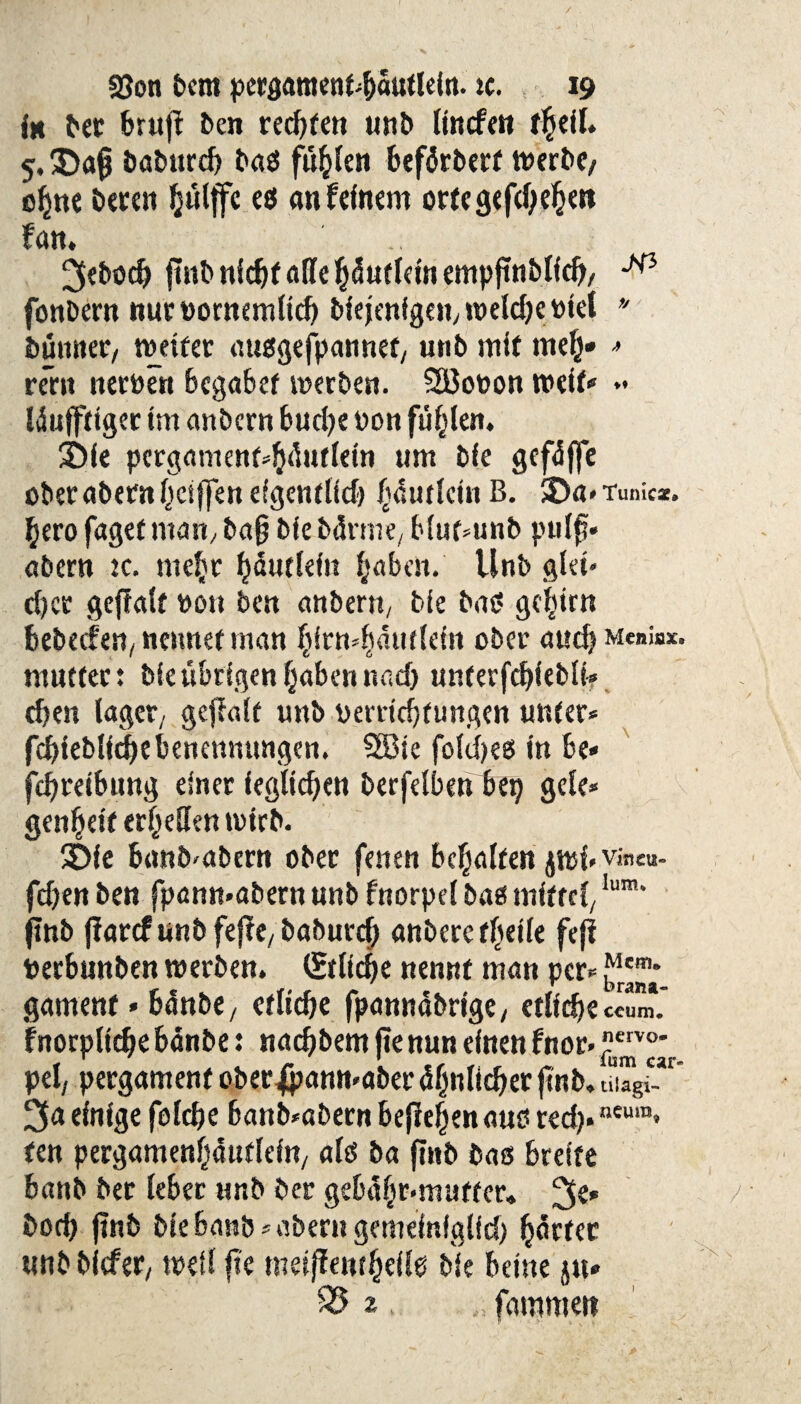 Von dem pergament-häutlein. ꝛc. 19
in der brust den rechten und lincken theil.
5. Daß dadurch das fühlen befördert werde/
ohne deren hülffe es an keinem orte geschehen
kan.
Jedoch sind nicht alle häutlein empfindlich/
sondern nur vornemlich diejenigen, welche viel
dünner/ weiter ausgespannet, und mit meh-
rern nerven begabet werden. Wovon weit-
läufftiger im andern buche von fühlen.
Die pergament-häutlein um die gefässe
oder adern heissen eigentlich häutlein B. Da- Tunicæ.
hero saget man, daß die därme, blut-und pulß-
adern ꝛc. mehr häutlein haben. Und glei-
cher gestalt von den andern, die das gehirn
bedecken, nennet man hirn-häutlein oder auch Meninx.
mutter: die übrigen haben nach unterschiedli-
chen lager, gestalt und verrichtungen unter-
schiedliche benennungen. Wie solches in be-
schreibung einer ieglichen derselben bey gele-
genheit erhellen wird.
Die band-adern oder senen behalten zwi- Vincu-
schen den spann-adern und knorpel das mittel, lum.
sind starck und feste, dadurch andere theile fest
verbunden werden. Etliche nennt man per- Mem-
gament-bände, etliche spannädrige, etliche brana-
ceum.
knorpliche bände: nachdem sie nun einen knor- nervo-
pel, pergament oder spann-ader ähnlicher sind. sum car-
tilagi-
Ja einige solche band-adern bestehen aus rech- neum,
ten pergamenhäutlein, als da sind das breite
band der leber und der gebähr-mutter. Je-
doch sind die band-adern gemeiniglich härter
und dicker, weil sie meistentheils die beine zu-
B 2 sammen